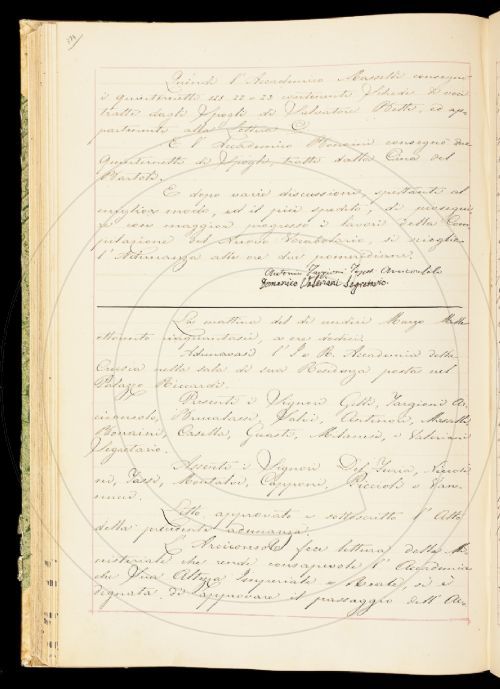 Quindi l'Accademico Masselli consegnò
i quinternetti ms. 22 e 23 contenente Schede di voci
tratte dagli Spogli di Salvatore Betti, ed ap-
partenente alla lettera C.
E l'Accademico Bonaini consegnò due
Quinternetti di Spogli, tratti dalla Cina del
Bartoli.
E dopo varie discussioni, spettanti al
miglior modo, ed il più spedito, di prosegui-
re con maggior progresso i lavori della Com-
pilazione del Nuovo Vocabolario, si sciolse
l'Adunanza alle ore due pomeridiane.
Antonio Targioni Tozzetti Arciconsolo
Domenico Valeriani Segretario.
La mattina del dì undici Marzo Mille
ottocento cinquantasei, a ore dodici.
Adunavasi l'I. e R. Accademia della
Crusca nella sala di sua Residenza posta nel
Palazzo Riccardi.
Presenti i Signori Gelli, Targioni Ar-
ciconsolo, Brucalassi, Salvi, Antinori, Masselli,
Bonaini, Casella, Guasti, Milanesi, e Valeriani
Segretario.
Assenti i Signori Del Furia, Niccoli-
ni, Tassi, Montalvi, Capponi, Piccioli e Van-
nucci.
Letto approvato e sottoscritto l'Atto
della precedente adunanza.
L'Arciconsolo fece lettura della Mi-
nisteriale che rende consapevole l'Accademia
che Sua Altezza Imperiale e Reale, si è
degnata di approvare il passaggio dell'Ac-